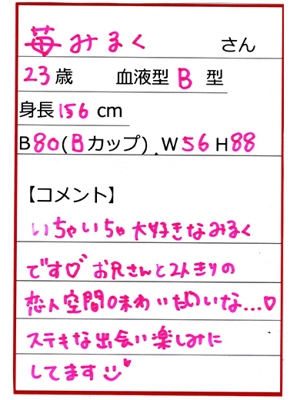 苺みるく さん
23歳 血液型 B 型
身長 156 cm
B80(Bカップ) . W56 H88
【コメント】
いちゃいちゃ大好きなみるく
です♡お兄さんと2人きりの
恋人空間味わいたいな...♡
ステキな出会い楽しみに
してます